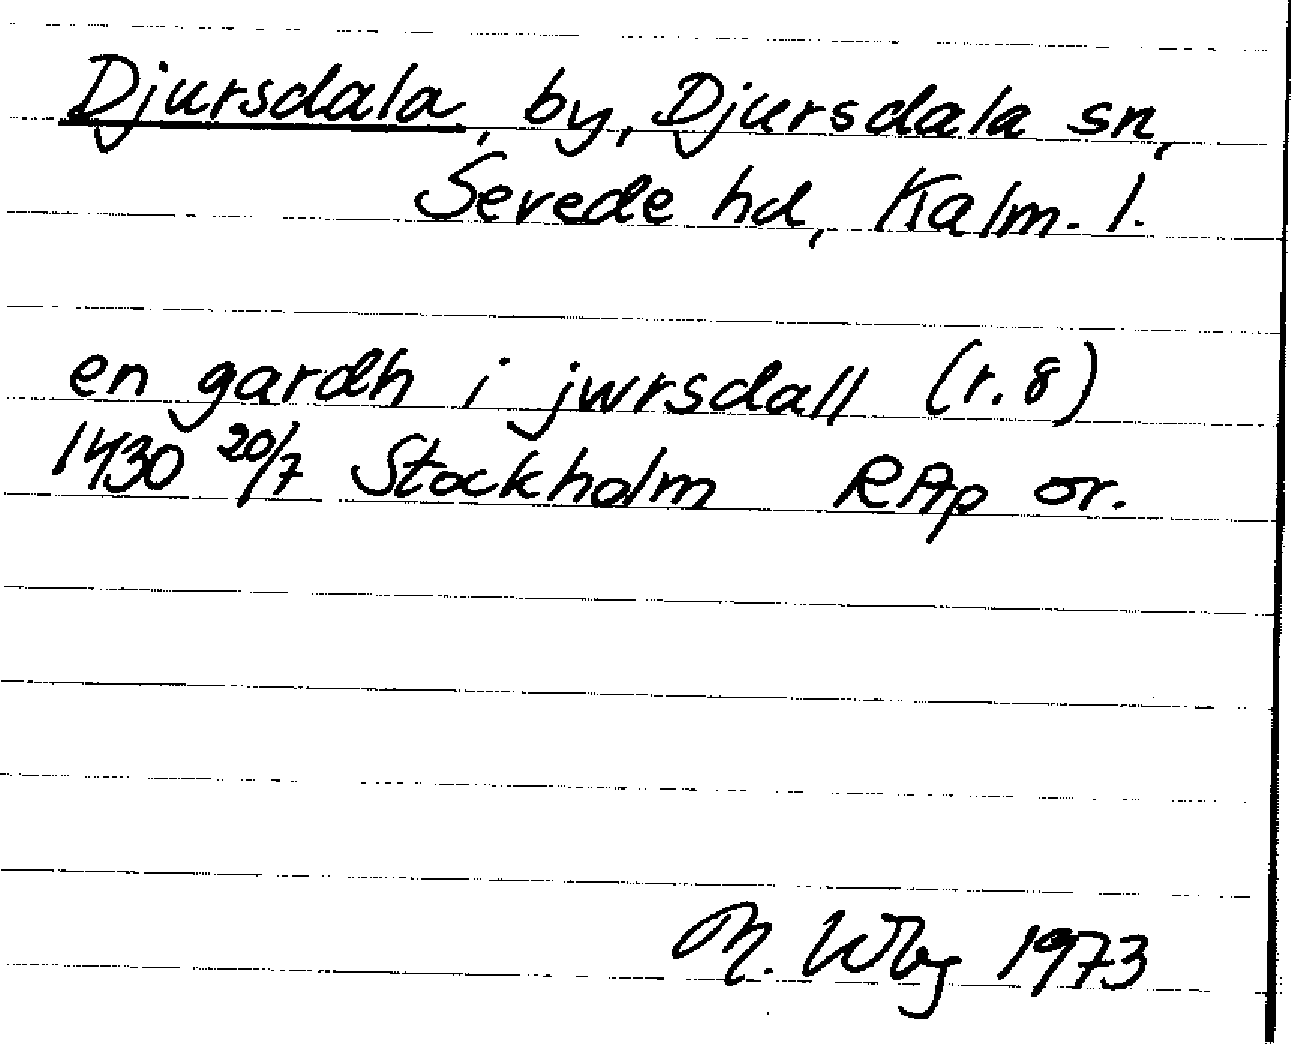 Djursdala, by, Djursdala sn,
Sevede hd, Kalm. l.
en gardh i jwrsdall (r. 8)
1430 20/7 Stockholm RAp or.
M. Wbg 1973